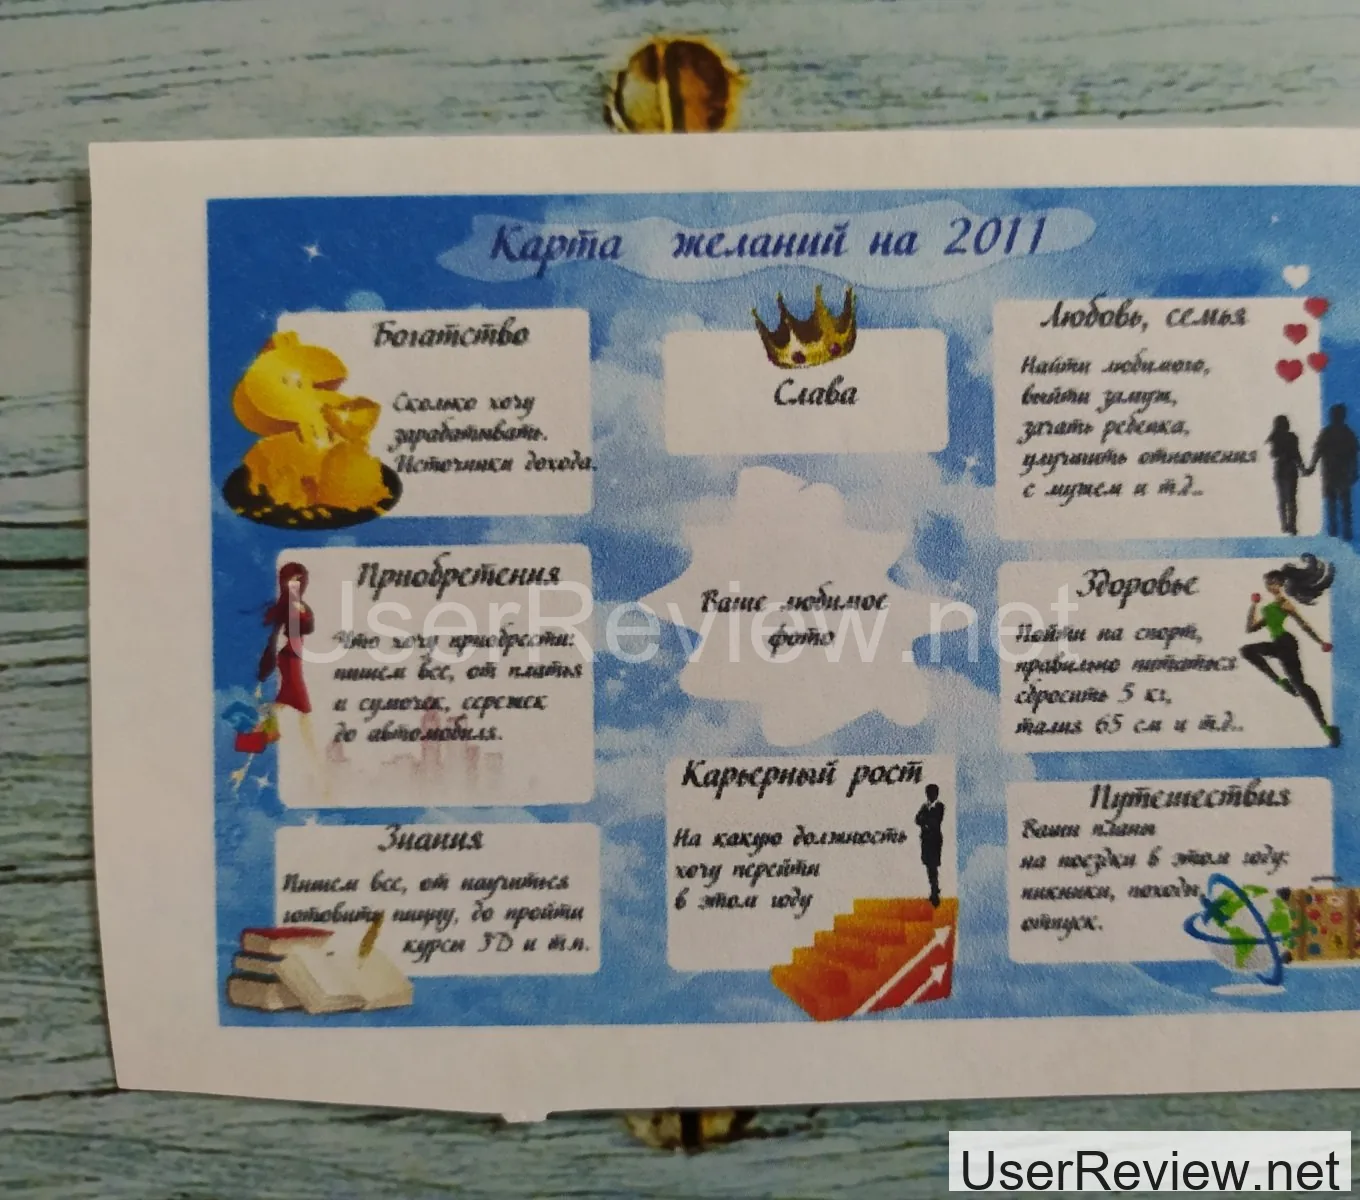 Карта желаний на 2011
Богатство
Сколько хочу
зарабатывать.
Источники дохода.
Слава
Любовь, семья
Найти любимого,
выйти замуж,
зачать ребенка,
улучшить отношения
с мужем и т.д..
Приобретения
Что хочу приобрести:
пишем все, от платья
и сумочек, сережек
до автомобиля.
Ваше любимое
фото
Здоровье
Пойти на спорт,
правильно питаться
сбросить 5 кг,
талия 65 см и т.д..
Знания
Пишем все, от научиться
готовить пиццу, до пройти
курсы 3D и т.п.
Карьерный рост
На какую должность
хочу перейти
в этом году
Путешествия
Ваши планы
на поездки в этом году:
пикники, походы,
отпуск.
UserReview.net
UserReview.net